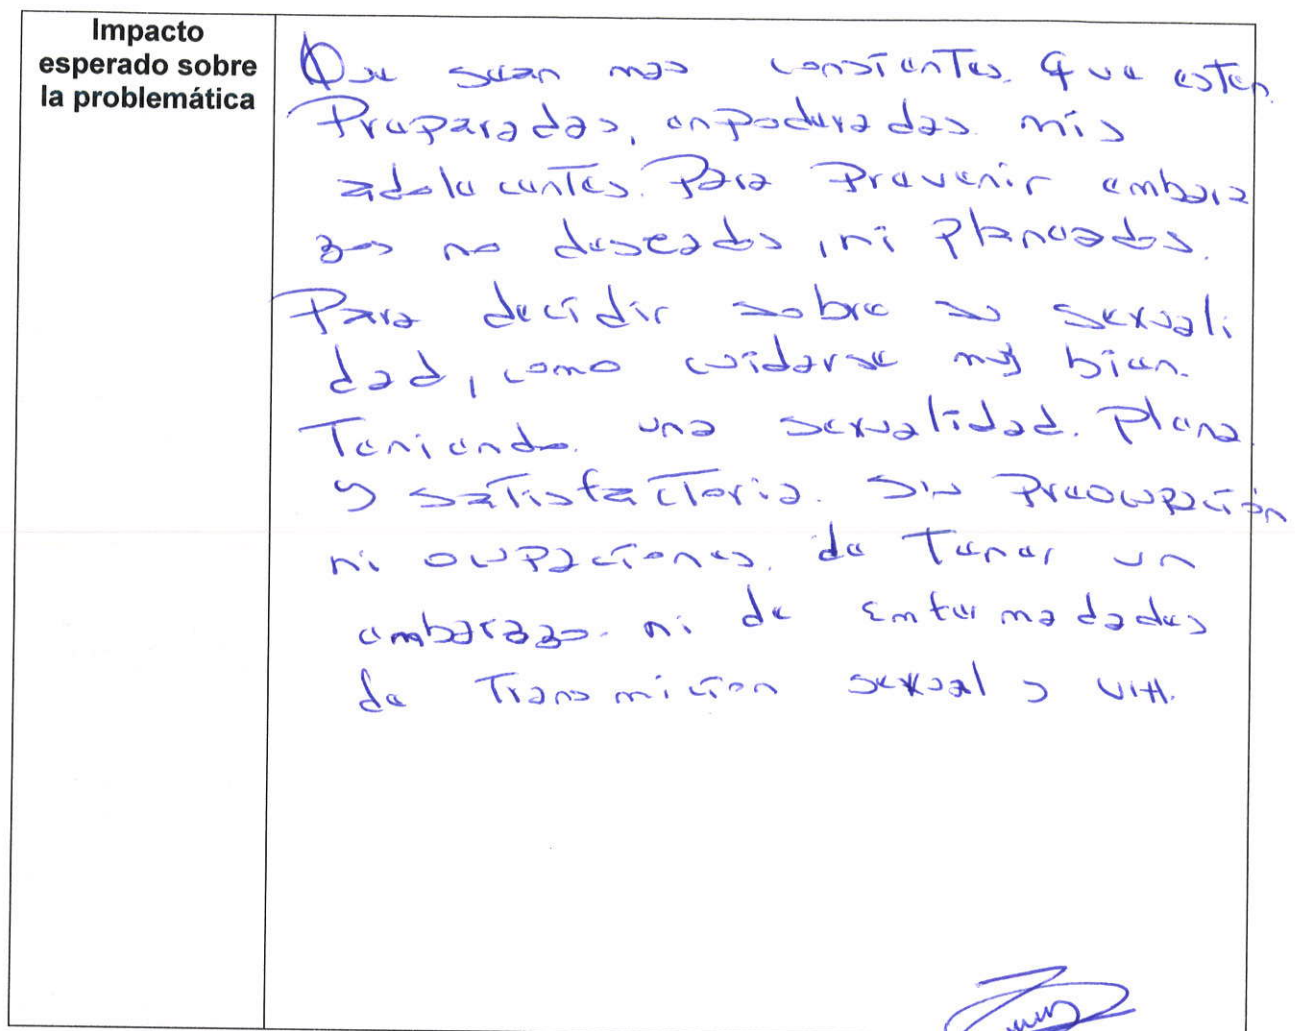 Impacto
esperado sobre
la problemática
Que sean mas consientes. que esten
Preparadas, enpoderadas mis
adolecentes. Para Prevenir embara
zos no deseados, ni planeados.
Para decidir sobre su sexuali
dad, como cuidarse muy bien.
Teniendo. una sexualidad. Plena
y satisfactoria. Sin Preocupación
ni ocupaciones. de Tener un
embarazo. ni de Enfermedades
de Transmicion sexual y VIH.